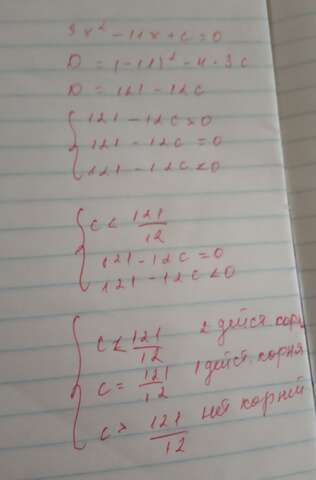 3x² - 11x + c = 0
D = (-11)² - 4 · 3c
D = 121 - 12c
121 - 12c > 0
121 - 12c = 0
121 - 12c < 0
c < 121/12
121 - 12c = 0
121 - 12c < 0
c < 121/12 2 дейст. корн
c = 121/12 1 дейст. корня
c > 121/12 нет корней